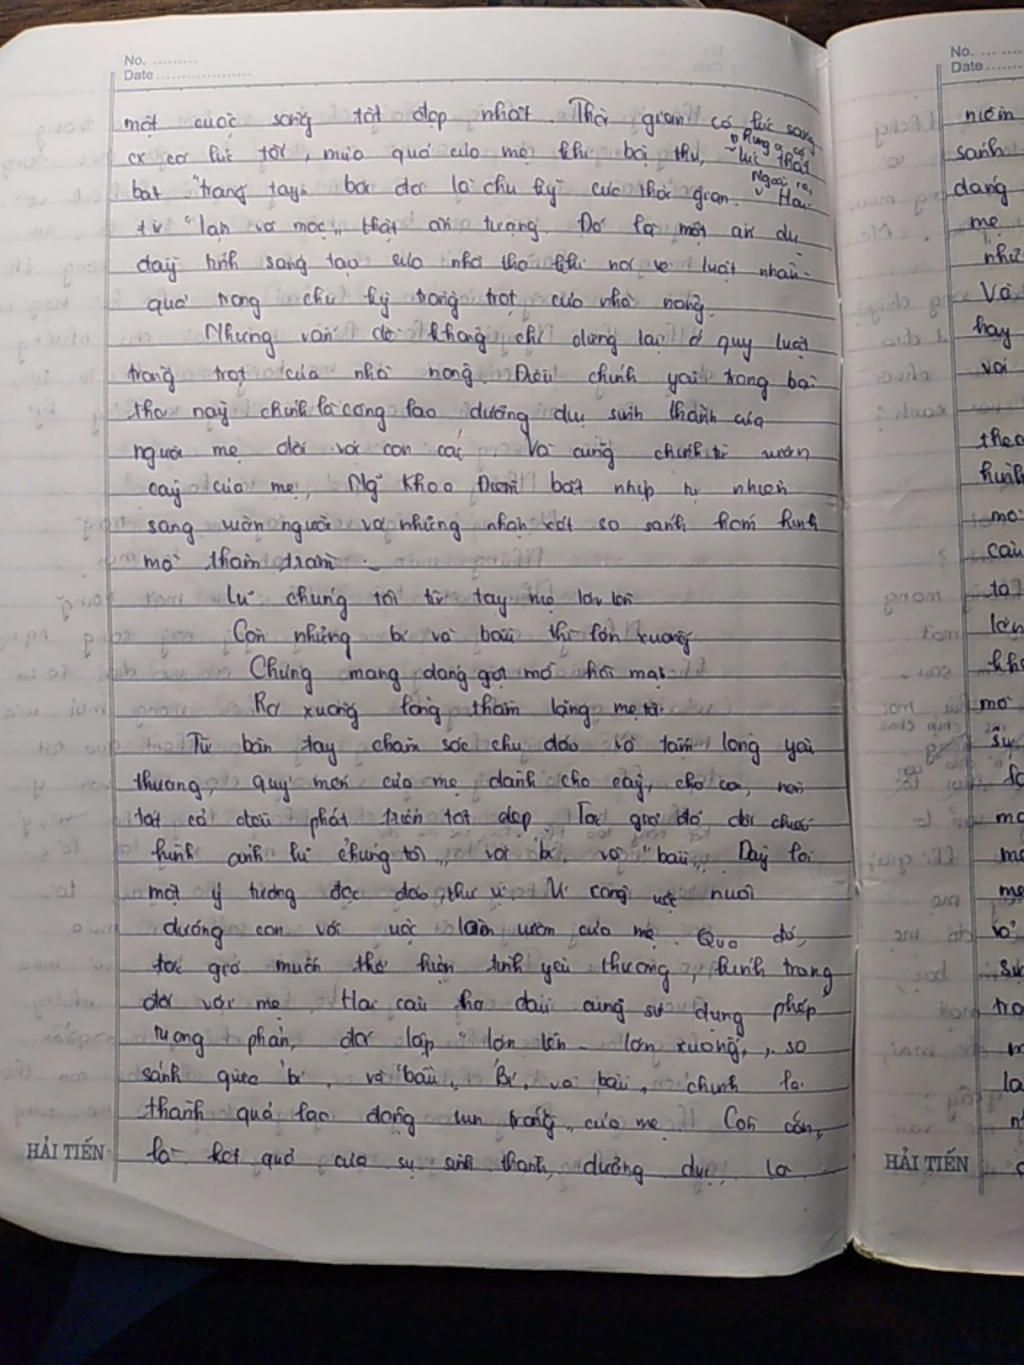 No. .........
Date ...................
một cuộc sống tốt đẹp nhất. Thời gian có lúc sáng
có lúc tối, mùa quả của mẹ khi bội thu, nhưng cũng có lúc thất
bát "trắng tay" bởi đó là chu kỳ của thời gian. Ngoài ra, Hai
từ "lặn và mọc" thật ấn tượng. Đó là một ẩn dụ
đầy tính sáng tạo của nhà thơ khi nói về luật nhân
quả trong chu kỳ trồng trọt của nhà nông.
Nhưng vấn đề không chỉ dừng lại ở quy luật
trồng trọt của nhà nông. Điều chính yếu trong bài
thơ này chính là công lao dưỡng dục sinh thành của
người mẹ đối với con cái. Và cũng chính từ vườn
cây của mẹ, Ng Khoa Điềm bắt nhịp tự nhiên
sang vườn người và những nhận xét so sánh hóm hỉnh
mà thâm trầm.
Lũ chúng tôi từ tay mẹ lớn lên
Còn những bí và bầu thì lớn xuống
Chúng mang dáng giọt mồ hôi mặn
Rơi xuống lòng thầm lặng mẹ tôi.
Từ bàn tay chăm sóc chu đáo và tấm lòng yêu
thương, quý mến của mẹ dành cho cây, cho con, nên
tất cả đều phát triển tốt đẹp. Tác giả đã đối chiếu
hình ảnh "lũ chúng tôi" với "bí" và "bầu". Đây là
một ý tưởng độc đáo, thú vị. Ví công việc nuôi
dưỡng con với việc làm vườn của mẹ. Qua đó,
tác giả muốn thể hiện tình yêu thương, kính trọng
đối với mẹ. Hai câu thơ đầu cũng sử dụng phép
tương phản, đối lập "lớn lên - lớn xuống", so
sánh giữa "bí" và "bầu". "Bí" và "bầu" chính là
thành quả lao động "vun trồng" của mẹ. Còn con,
là kết quả của sự sinh thành, dưỡng dục, là
HẢI TIẾN
No. ........
Date .......
niềm
sánh
dáng
mẹ
như
Và
hay
với
theo
hình
câu
ta
lớn
mà
HẢI TIẾN